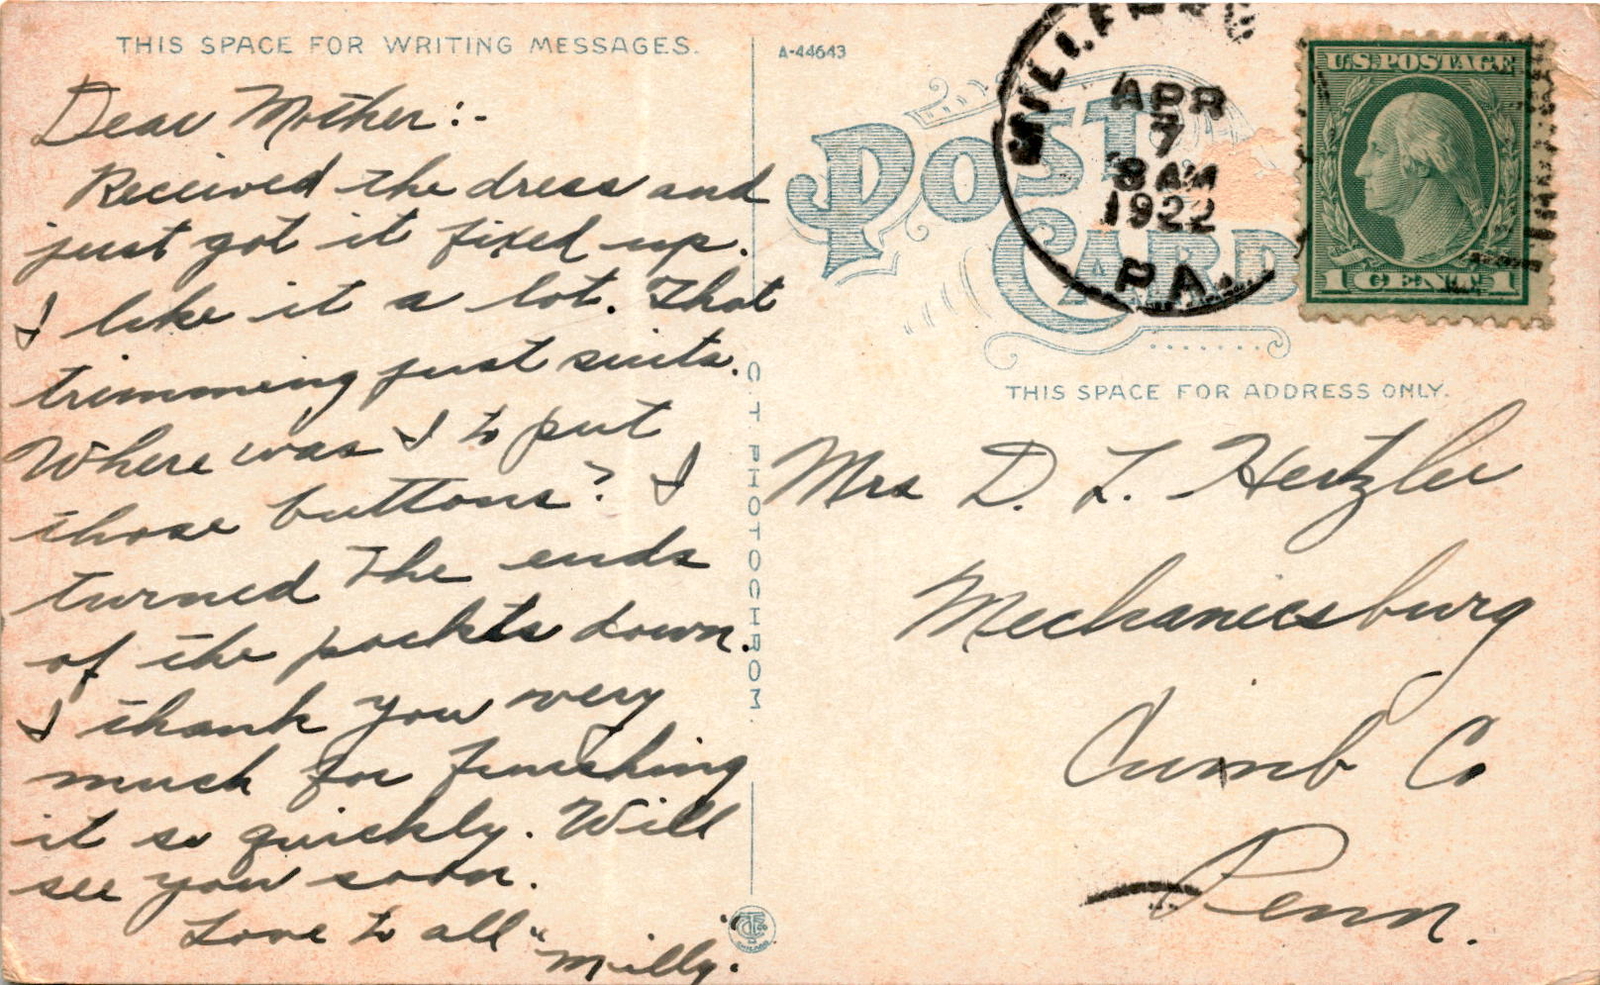 THIS SPACE FOR WRITING MESSAGES.
Dear Mother:-
Received the dress and
just got it fixed up.
I like it a lot. That
trimming just suits.
Where was I to put
those buttons? I
turned the ends
of the pockets down.
I thank you very
much for finishing
it so quickly. Will
see you soon.
Love to all
"Milly."
C.T. PHOTOCHROM
A-44643
POST CARD
APR
7
8 AM
1922
PA.
U.S. POSTAGE
1 CENT 1
THIS SPACE FOR ADDRESS ONLY.
Mrs D. L. Hertzler
Mechanicsburg
Cumb Co
Penn.